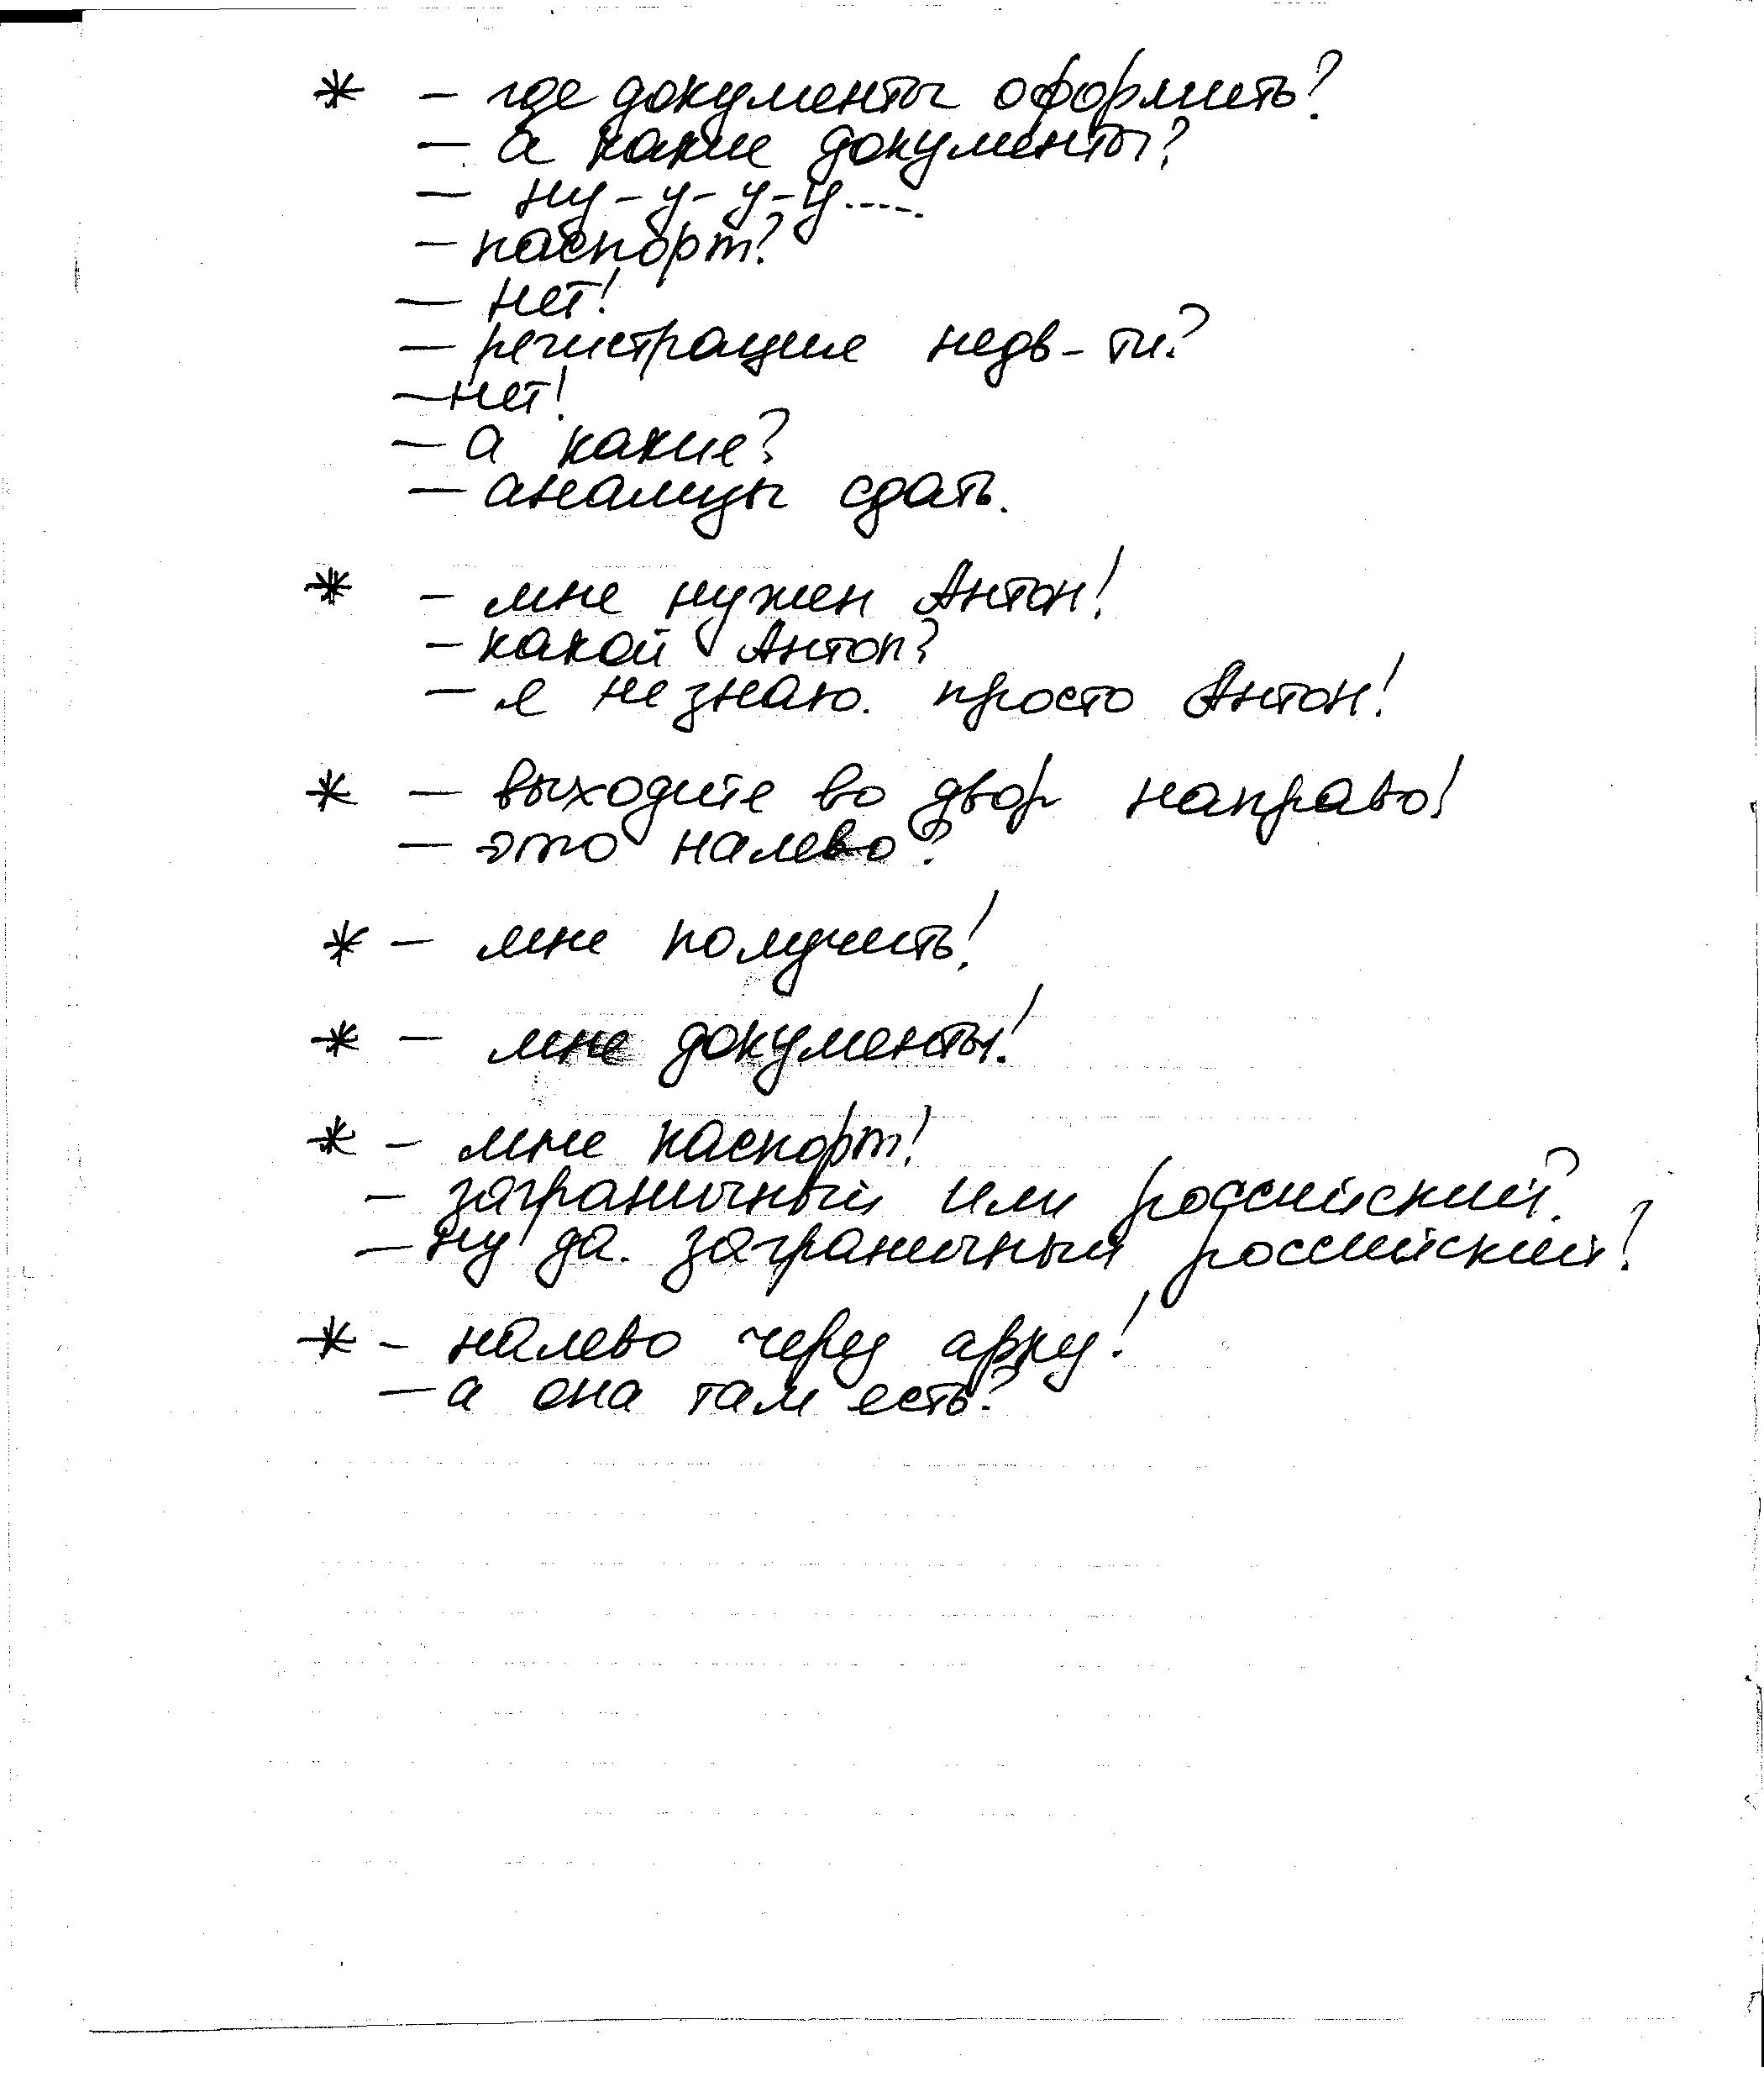 * – где документы оформить?
– а какие документы?
– ну-у-у-у.....
– паспорт?
– нет!
– регистрация недв-ти?
– нет!
– а какие?
– анализы сдать.
* – мне нужен Антон!
– какой Антон?
– я не знаю. просто Антон!
* – выходите во двор направо!
– это налево?
* – мне получить!
* – мне документы!
* – мне паспорт!
– заграничный или российский?
– ну да. заграничный российский!
* – налево через арку!
– а она там есть?